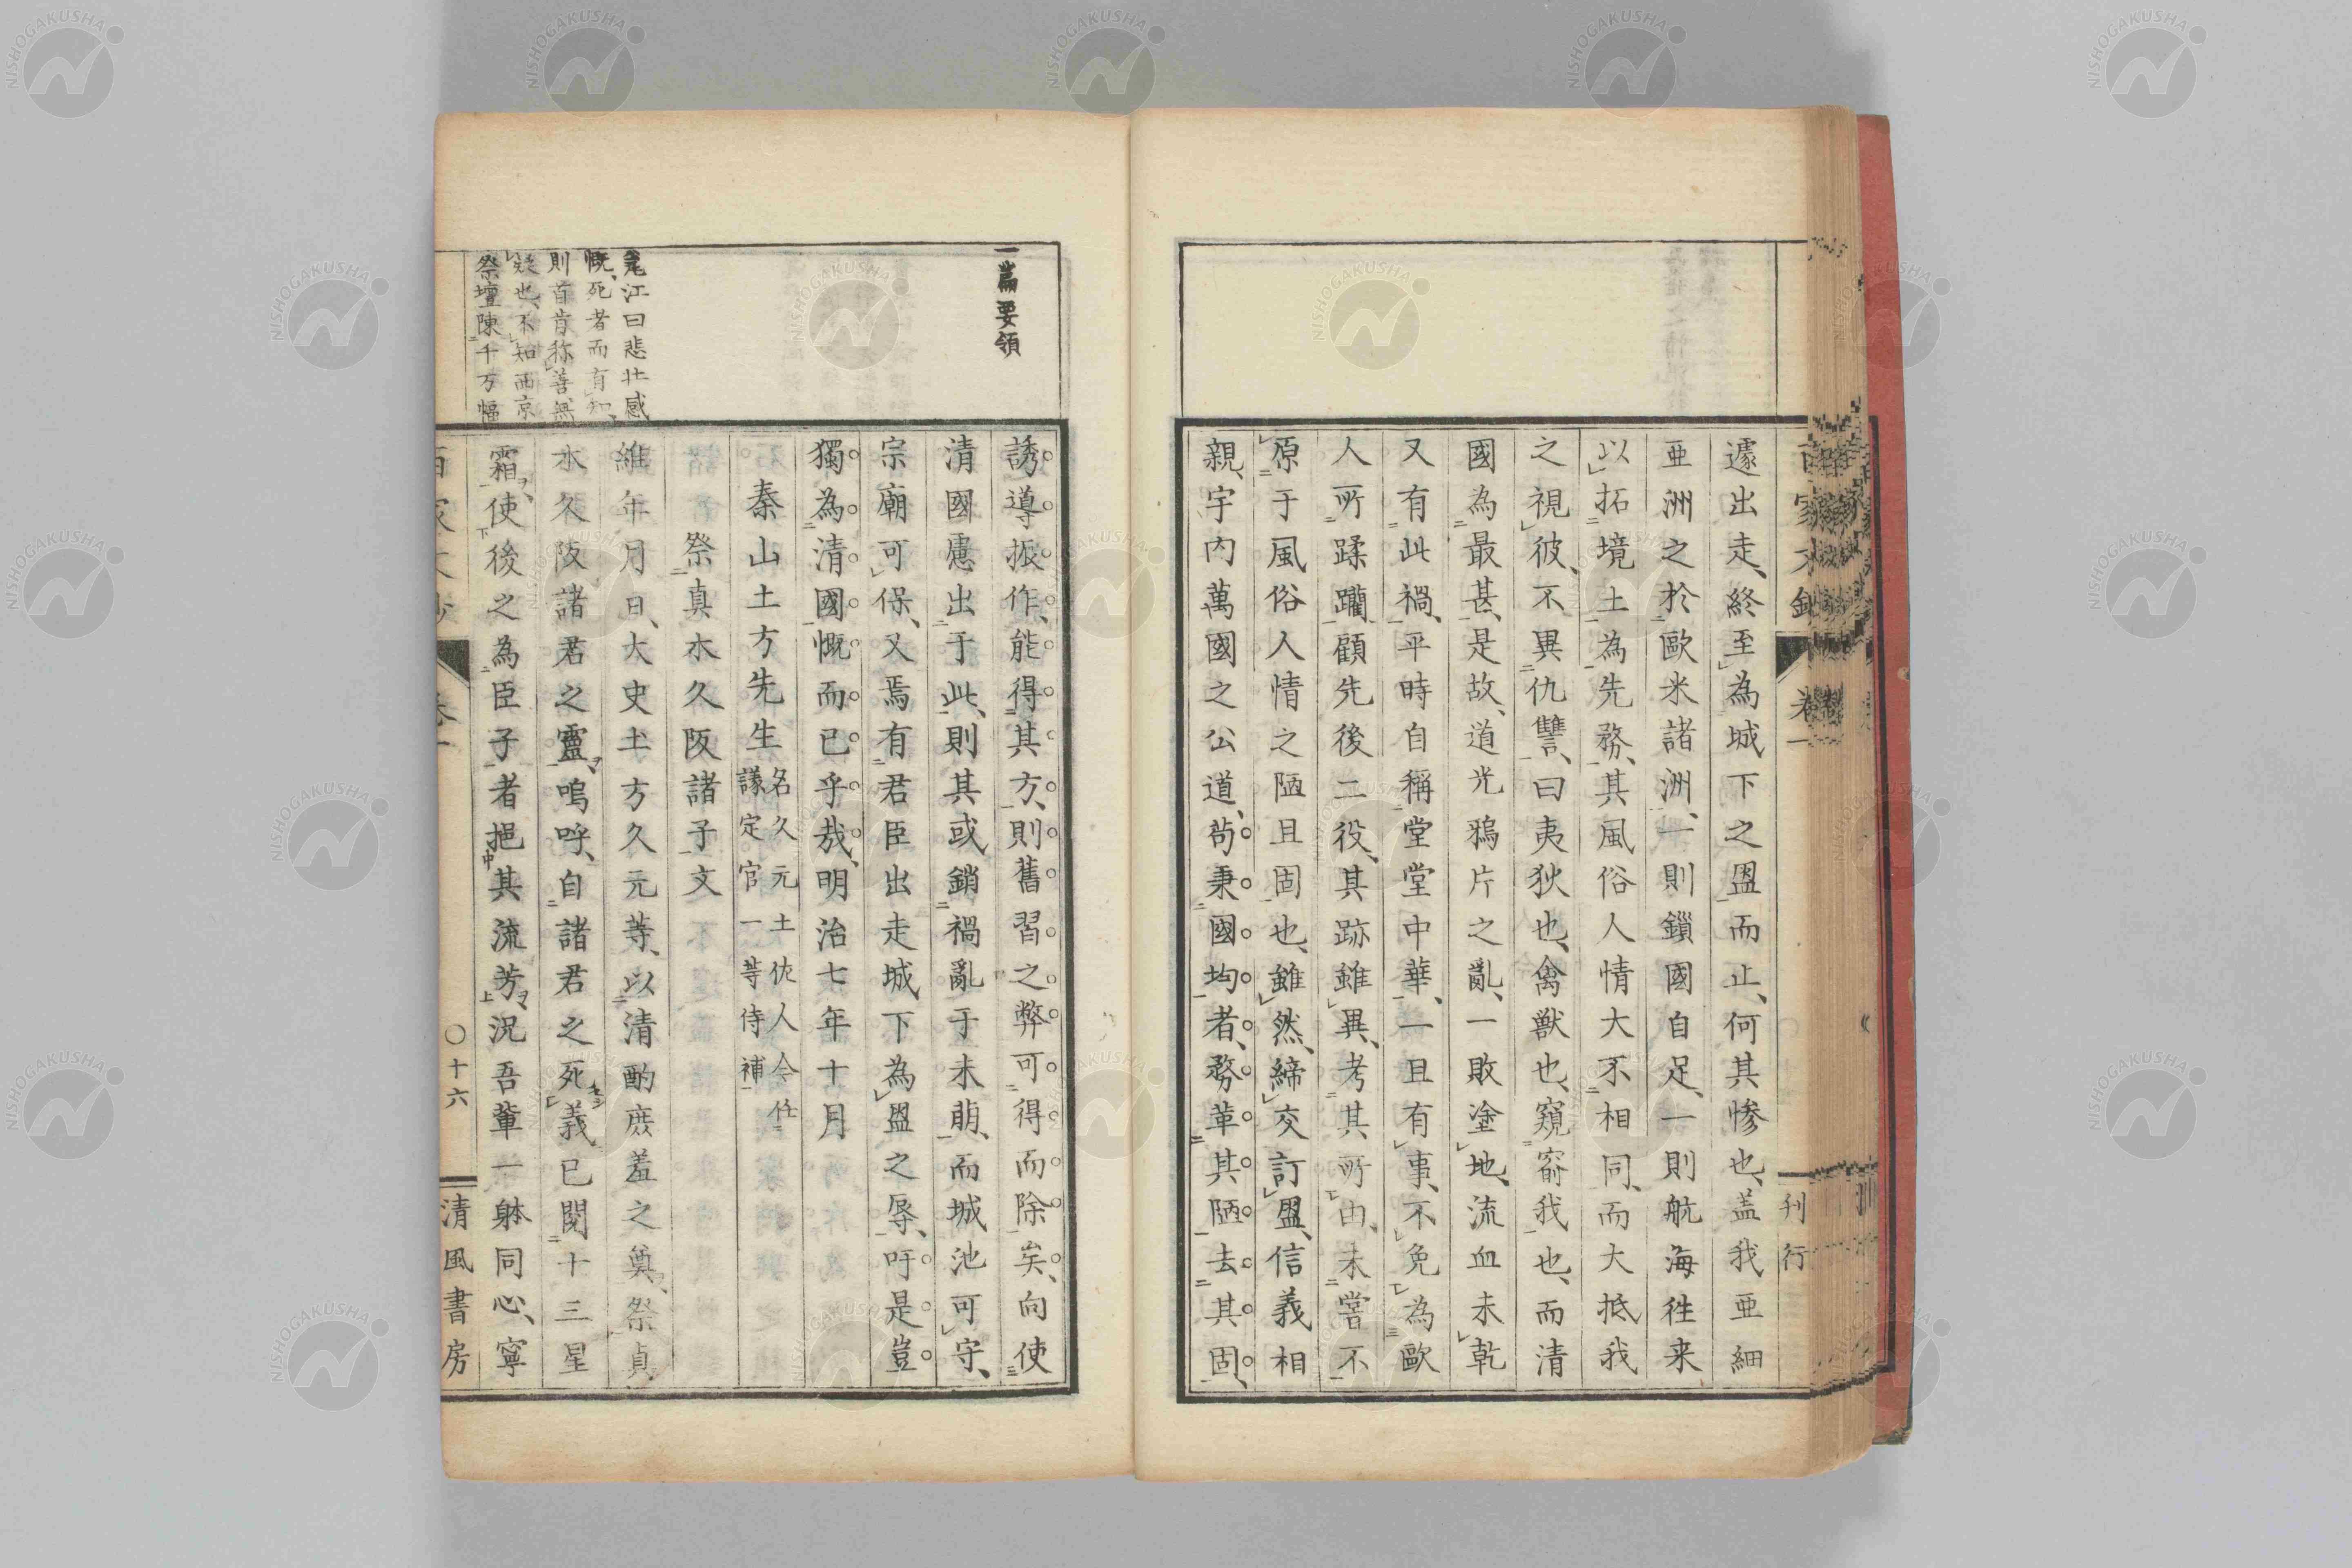 遽出走、終至為城下之盟而止、何其惨也、盖我亜細
亜洲之於歐米諸洲、一則鎖國自足、一則航海徃来
以拓境土為先務、其風俗人情大不相同、而大抵我
之視彼、不異仇讐、曰夷狄也、禽獣也、窺窬我也、而清
國為最甚、是故、道光鴉片之亂、一敗塗地、流血未乾
又有此禍、平時自稱堂堂中華、一旦有事、不免為歐
人所蹂躪、顧先後二役、其跡雖異、考其所由、未嘗不
原于風俗人情之陋且固也、雖然、締交訂盟、信義相
親、宇内萬國之公道、苟秉國均者、務革其陋去其固、
刊行
一篇要領
誘導振作、能得其方、則舊習之弊可得而除矣、向使
清國慮出于此、則其或銷禍亂于未萠、而城池可守、
宗廟可保、又焉有君臣出走城下為盟之辱、吁是豈
獨為清國慨而已乎哉、明治七年十月
秦山土方先生 名久元土佐人今任
議定官一等侍補
祭真木久阪諸子文
維年月日、大史土方久元等、以清酌庶羞之奠、祭眞
木久阪諸君之靈、嗚呼、自諸君之死義已閲十三星
霜、使後之為臣子者挹其流芳、况吾輩一躰同心、寧
江曰悲壯感
慨、死者而有知、
則首肯称善無
疑也、不知西京
祭壇陳千万幅
卷一
〇十六
清風書房